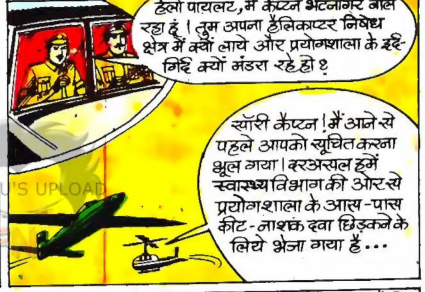 हैलो पायलट, मैं कैप्टन भटनागर बोल
रहा हूं ! तुम अपना हैलिकाप्टर निषेध
क्षेत्र में क्यों लाये और प्रयोगशाला के इर्द-
गिर्द क्यों मंडरा रहे हो ?
सॉरी कैप्टन ! मैं आने से
पहले आपको सूचित करना
भूल गया । दरअसल हमें
स्वास्थ्य विभाग की ओर से
प्रयोगशाला के आस-पास
कीट-नाशक दवा छिड़कने के
लिये भेजा गया है...
U'S UPLOAD